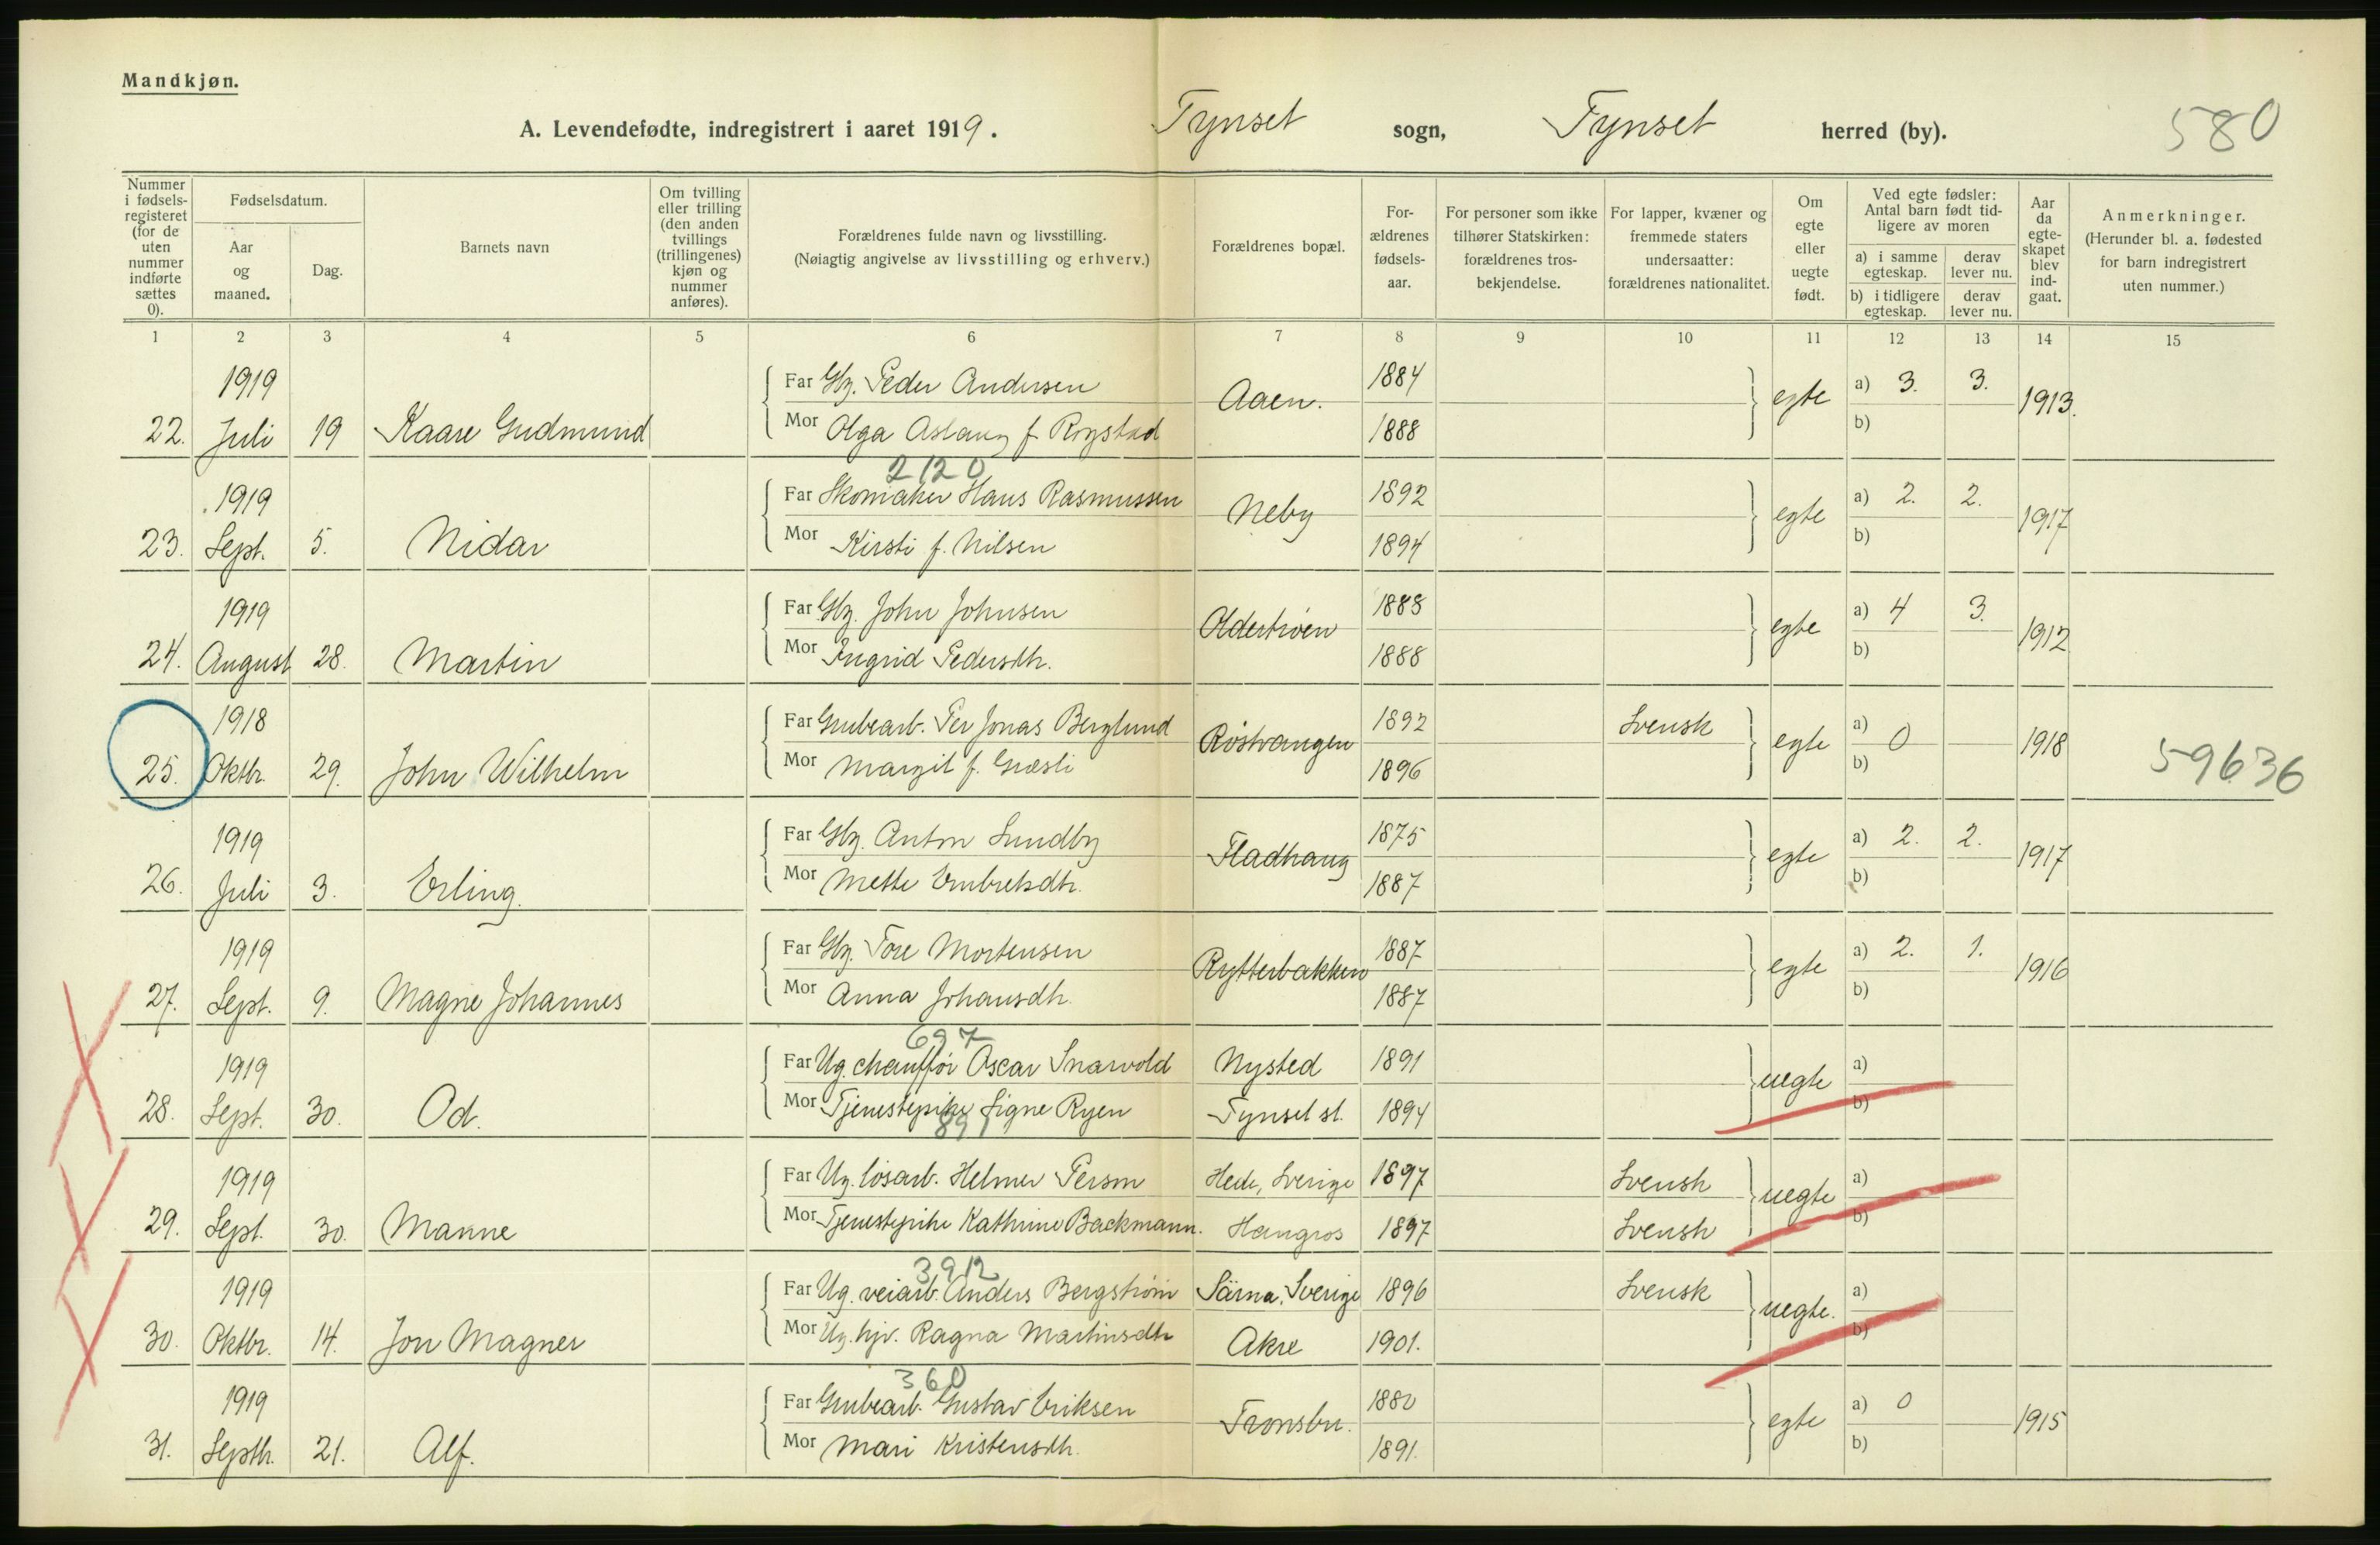 Mandkjøn.
A. Levendefødte, indregistrert i aaret 1919. Tynset sogn, Tynset herred (by). 580
Nummer i fødsels-registeret (for de uten nummer indførte sættes 0).
Fødselsdatum.
Aar og maaned.
Dag.
Barnets navn
Om tvilling eller trilling (den anden tvillings (trillingenes) kjøn og nummer anføres).
Forældrenes fulde navn og livsstilling.
(Nøiagtig angivelse av livsstilling og erhverv.)
Forældrenes bopæl.
For-ældrenes fødsels-aar.
For personer som ikke tilhører Statskirken: forældrenes tros-bekjendelse.
For lapper, kvæner og fremmede staters undersaatter: forældrenes nationalitet.
Om egte eller uegte født.
Ved egte fødsler: Antal barn født tid-ligere av moren
a) i samme egteskap.
derav lever nu.
b) i tidligere egteskap.
derav lever nu.
Aar da egte-skapet blev ind-gaat.
Anmerkninger.
(Herunder bl. a. fødested for barn indregistrert uten nummer.)
1 2 3 4 5 6 7 8 9 10 11 12 13 14 15
1919 Far Gbr. Peder Andersen 1884 a) 3. 3.
22. Juli 19 Kaare Gudmund Mor Olga Aslaug f. Rogstad Aaen. 1888 egte b) 1913.
2120
1919 Far Skomaker Hans Rasmussen 1892 a) 2. 2.
23. Sept. 5. Nidar Mor Kirsti f. Nilsen Neby 1894 egte b) 1917
1919 Far Gbr. John Johnsen 1888 a) 4 3.
24. August 28. Martin Mor Ingrid Pedersdtr. Oldertrøen 1888 egte b) 1912
1918 Far Grubearb. Per Jonas Berglund 1892 Svensk a) 0
25. Oktbr. 29. John Wilhelm Mor Margit f. Græsli Röstvangen 1896 egte b) 1918 59636
1919 Far Gbr. Anton Sundby 1875 a) 2. 2.
26. Juli 3. Erling. Mor Mette Embretsdtr. Fladhaug 1887 egte b) 1917
1919 Far Gbr. Tore Mortensen 1887 a) 2. 1.
27. Sept. 9. Magne Johannes Mor Anna Johansdtr. Rytterbakken 1887 egte b) 1916
697
1919 Far Ug. chauffør Oscar Snarvold Nysted 1891 a)
28. Sept. 30. Od. Mor Tjenestepike Signe Ryen Tynset st. 1894 uegte b)
891
1919 Far Ug. løsarb. Helmer Person Hede, Sverige 1897 Svensk a)
29. Sept. 30. Manne Mor Tjenestepike Kathrine Backmann. Hangros 1897 Svensk uegte b)
3912
1919 Far Ug. veiarb. Anders Bergstrøm Särna, Sverige 1896 Svensk a)
30. Oktbr. 14. Jon Magner Mor Ug. hjv. Ragna Martinsdtr Akre 1901. uegte. b)
360
1919 Far Grubearb. Gustav Eriksen 1880 a) 0
31. Septb. 21. Alf. Mor Mari Kristensdtr. Tronsbu. 1891. egte b) 1915